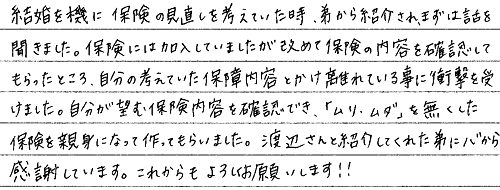 結婚を機に保険の見直しを考えていた時、弟から紹介され、まずは話を
聞きました。保険には加入していましたが改めて保険の内容を確認して
もらったところ、自分の考えていた保障内容とかけ離れている事に衝撃を受
けました。自分が望む保険内容を確認でき、「ムリ・ムダ」を無くした
保険を親身になって作ってもらいました。渡辺さんと紹介してくれた弟に心から
感謝しています。これからもよろしくお願いします!!